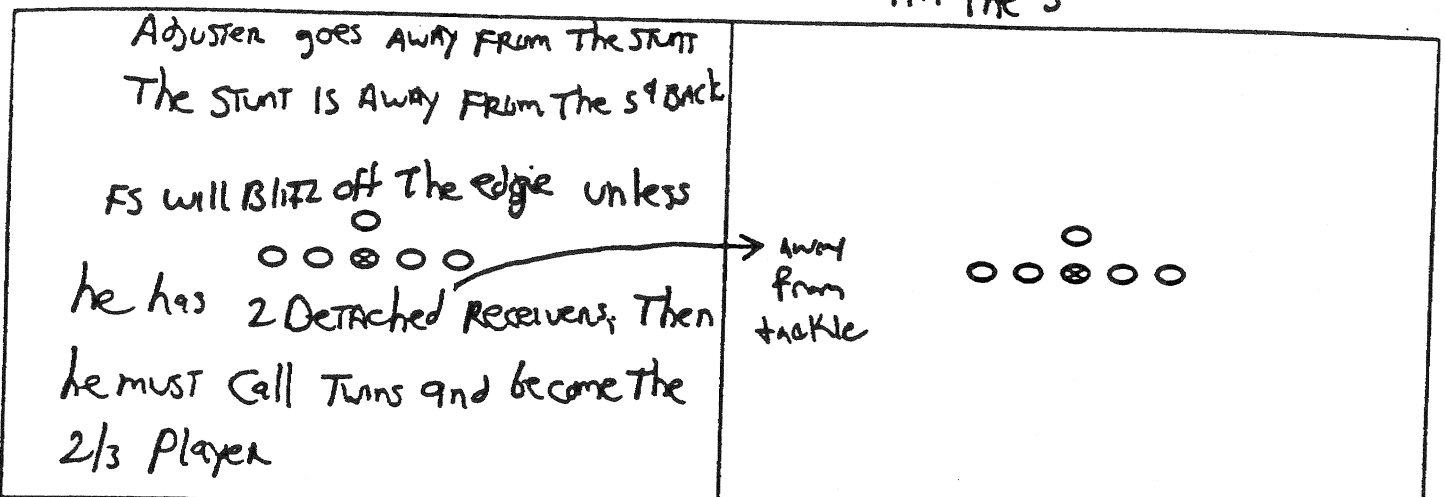 The S
Adjuster goes AWAY FROM The STUNT
The STUNT IS AWAY FROM The 5th BACK
FS will Blitz off The edge unless
he has 2 Detached Receivers, Then
he must Call Twins and become the
2/3 Player
Away
from
tackle